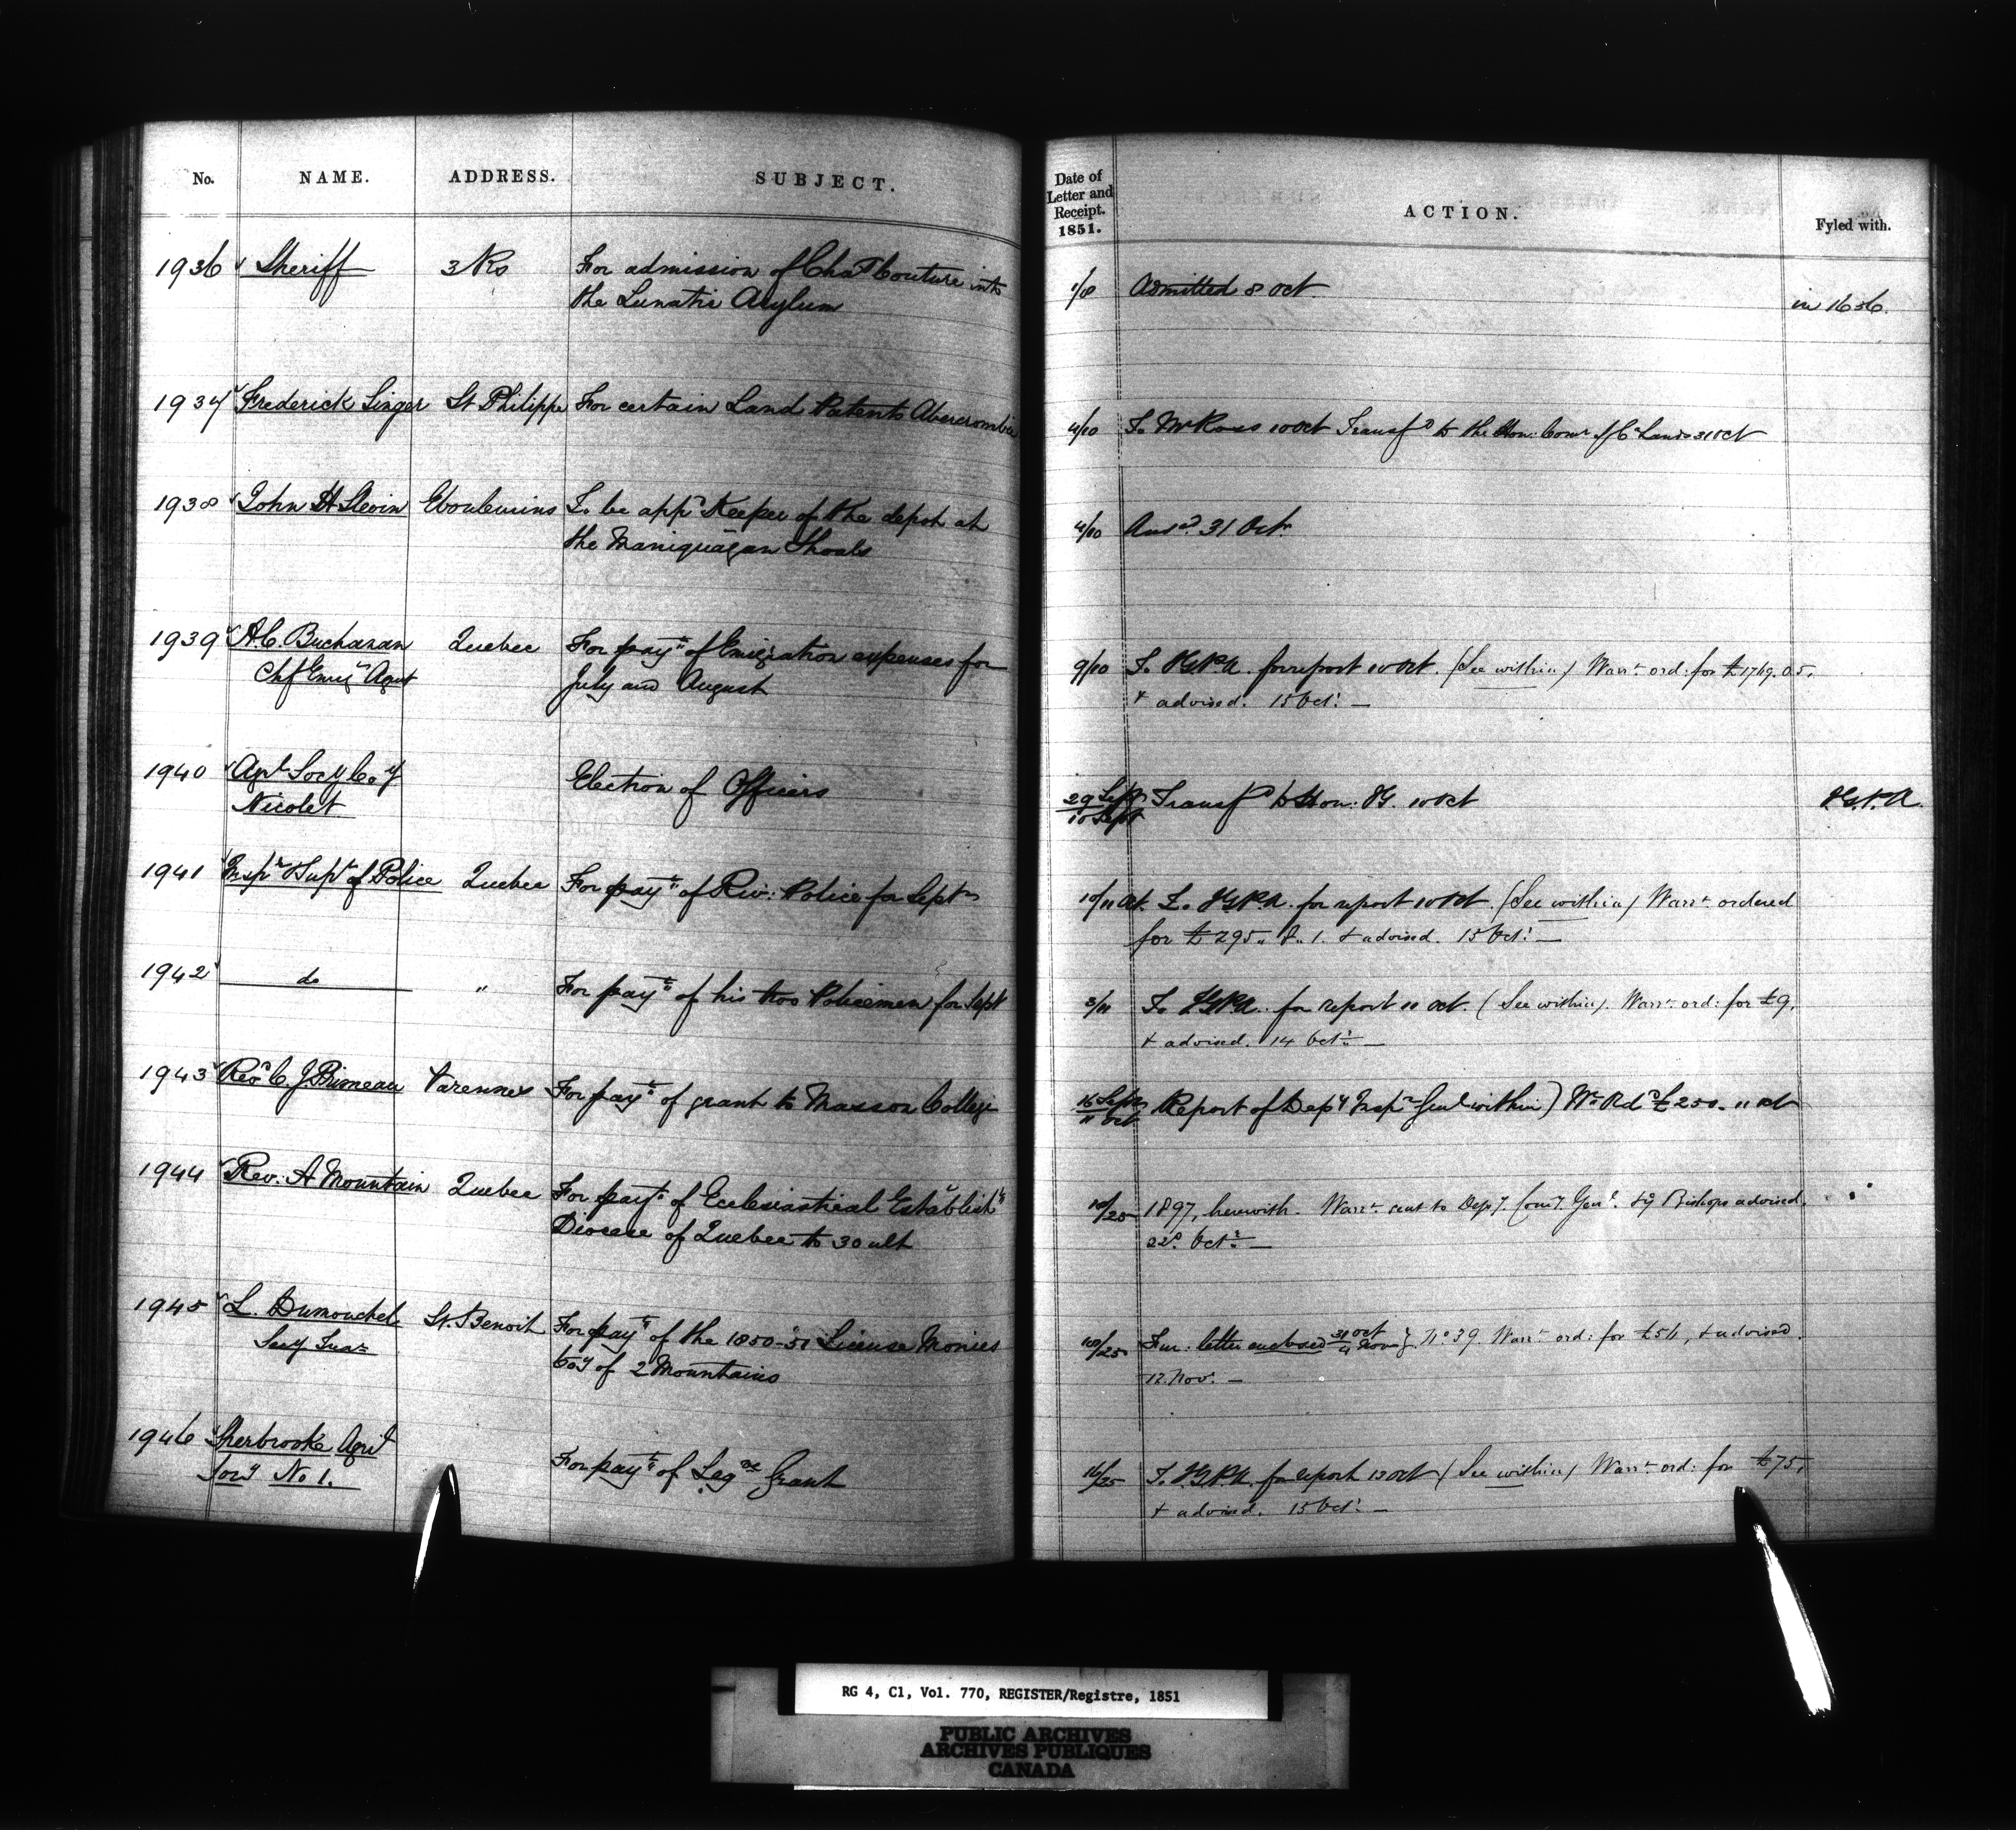 No. NAME. ADDRESS. SUBJECT.
Date of Letter and Receipt. 1851. ACTION. Fyled with.
1936 Sheriff 3 Rs For admission of Chas Couture into
the Lunatic Asylum
1/8 Admitted 8 Oct. in 1636.
1937 Frederick Singer St Philippe For certain Land Patents Abercrombie
4/10 To Mr Ross 10 Oct Transfd to the Hon: Comr of Cn Lands 31 Oct
1938 John H Slevin Eboulemins To be appd Keeper of the depot at
the Maniquagan Shoals
4/10 Ansd. 31 Oct.
1939 A.C. Buchanan Quebec For payt of Emigration expenses for
Chf Emign Agent July and August
9/10 To I.G.P.A. for report 10 Oct. (See within) Warrt. ord: for £1769.0.5.
+ advised. 15 Oct: —
1940 Agrl Socy Coy Election of Officers
Nicolet
29 Sept
10 Sept Transfd to Hon: IG. 10 Oct I.G.P.A.
1941 Inspr & Supt of Police Quebec For payt of Riv: Police for Sept
10/11 Oct. To I.G.P.A. for report 10 Oct. (See within) Warrt. ordered
for £295.. 8.. 1. + advised. 15 Oct: —
1942 do " For payt of his two Policemen for Sept
3/11 To I.G.P.A. for report 11 Oct. (See within). Warrt. ord: for £9.
+ advised. 14 Oct: —
1943 Revd C. J Primeau Varennes For payt of grant to Masson College
16 Sept
11 Oct Report of Depy Inspr Genl within) Wt Ord £250. 11 Oct
1944 Rev: A Mountain Quebec For payt of Ecclesiastical Establisht
Diocese of Quebec to 30 ult
10/25 1897, herewith. Warrt. sent to Depy. Comy. Genl. & Bishops advised.
22d. Oct: —
1945 L. Dumouchel St. Benoit For payt of the 1850-51 License Monies
Secy Treas Coy of 2 Mountains
10/25 Fur: letter enclosed 31 Oct / 4 Nov } No 39. Warrt ord: for £54, + advised.
12. Nov. —
1946 Sherbrooke Agril For payt of Lege Grant
Socy No 1.
16/25 To I.G.P.A. for report 13 Oct (See within) Warrt. ord: for £75,
+ advised. 15 Oct: —
RG 4, C1, Vol. 770, REGISTER/Registre, 1851
PUBLIC ARCHIVES
ARCHIVES PUBLIQUES
CANADA